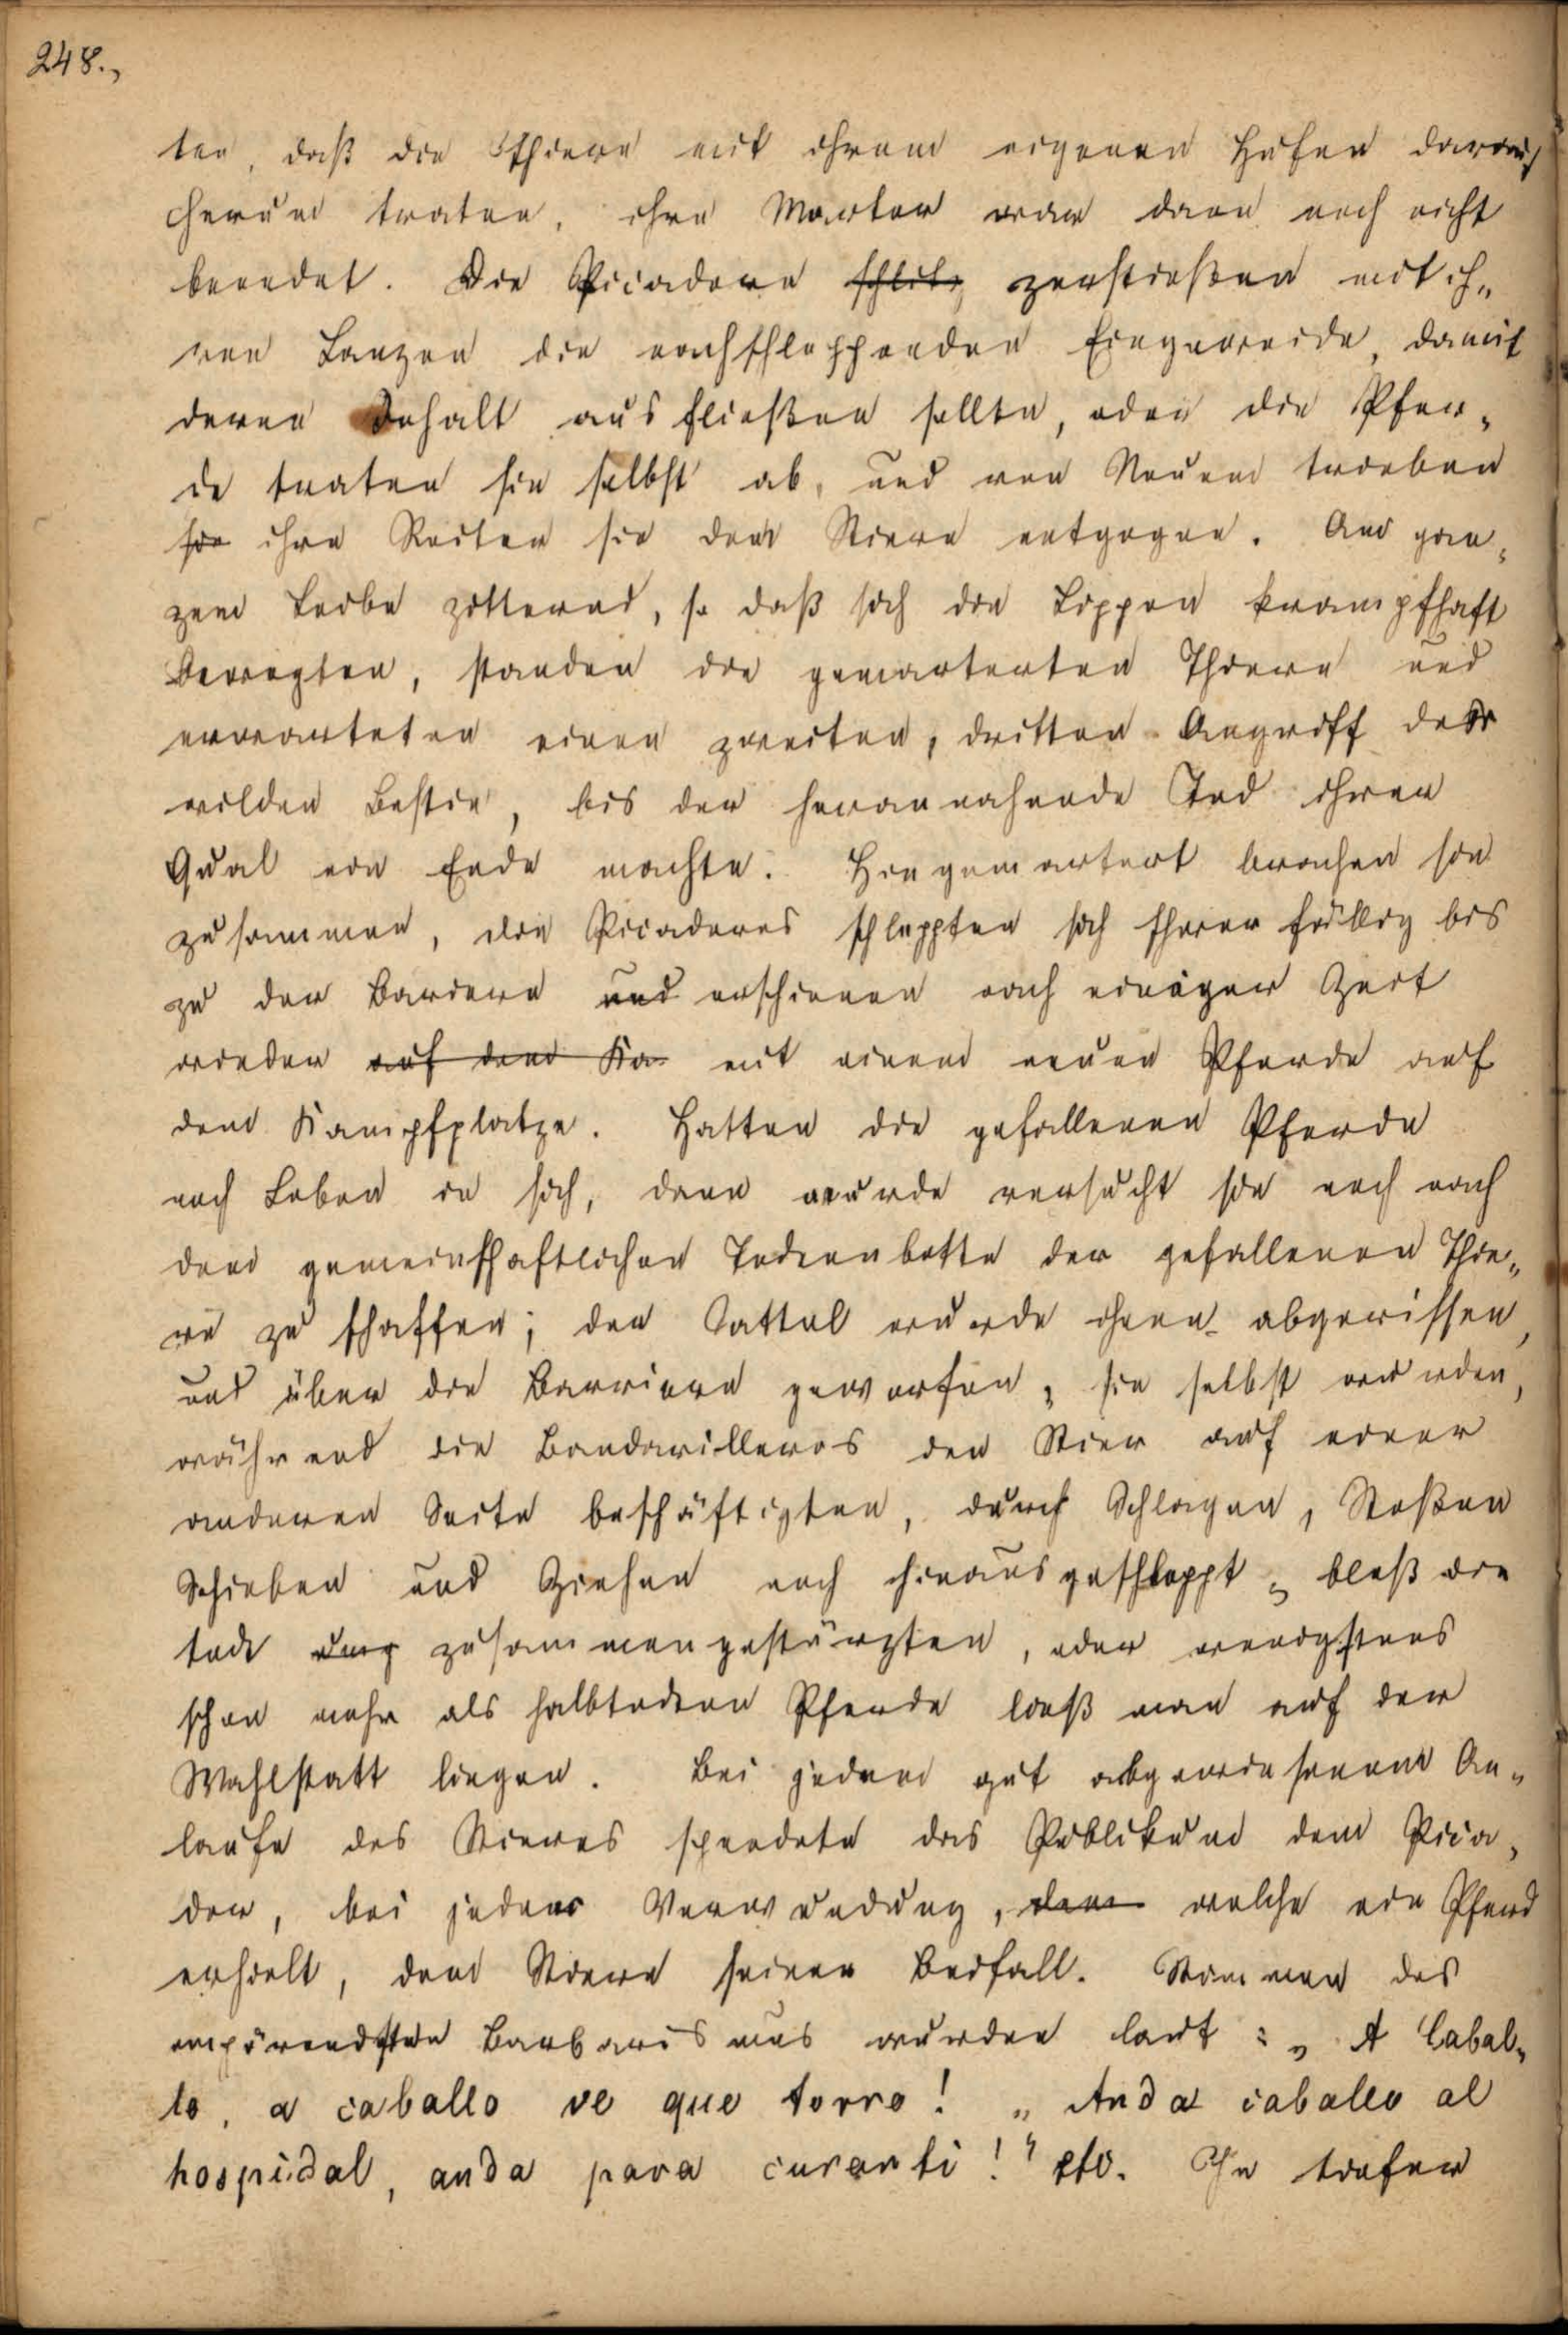 248.,
ten, daß die Thiere mit ihren eigenen Hufen darauf
herum traten, ihre Marter war dann noch nicht
beendet. Die Picadore schlitz zerstießen mit ih„
ren Lanzen die nachschleppenden Eingeweide, damit
deren Inhalt ausfließen sollte, oder die Pfer„
de traten sie selbst ab, und von Neuem trieben
sie ihre Reiter sie dem Stiere entgegen. Am gan„
zem Leibe zitternd, so daß sich die Lippen krampfhaft
bewegten, standen die gemarterten Thiere und
erwarteten einen zweiten, dritten Angriff der
wilden Bestie, bis der herannahende Tod ihrer
Qual ein Ende machte. Hingemartert brachen sie
zusammen, die Picadores schleppten sich schwerfällig bis
zu der Bariere und erschienen nach einiger Zeit
wieder auf dem Ka mit einem neuen Pferde auf
dem Kampfplatze. Hatten die gefallenen Pferde
noch Leben in sich, dann wurde versucht sie noch nach
dem gemeinschaftlichen Todtenbette der gefallenen Thie„
re zu schaffen; der Sattel wurde ihnen abgerissen,
und über die Barriere geworfen, sie selbst wurden,
während die Bandarilleros den Stier auf einer
anderen Seite beschäftigten, durch Schlagen, Stoßen
Schieben und Ziehen noch hinausgeschleppt, bloß die
todt zusammengestürzten, oder wenigstens
schon mehr als halbtodten Pferde ließ man auf der
Wahlstatt liegen. Bei jedem gut abgewiesenem An„
laufe des Stieres spendete das Publikum dem Pica„
dor, bei jeder Verwundung, dem welche ein Pferd
erhielt, dem Stiere seinen Beifall. Stimmen des
empörendsten Barbarismus wurden laut: „ A Cabal„
lo, a caballo ve que torro! „ Anda caballo al
hospidal, anda para curarti!" etc. In tiefer